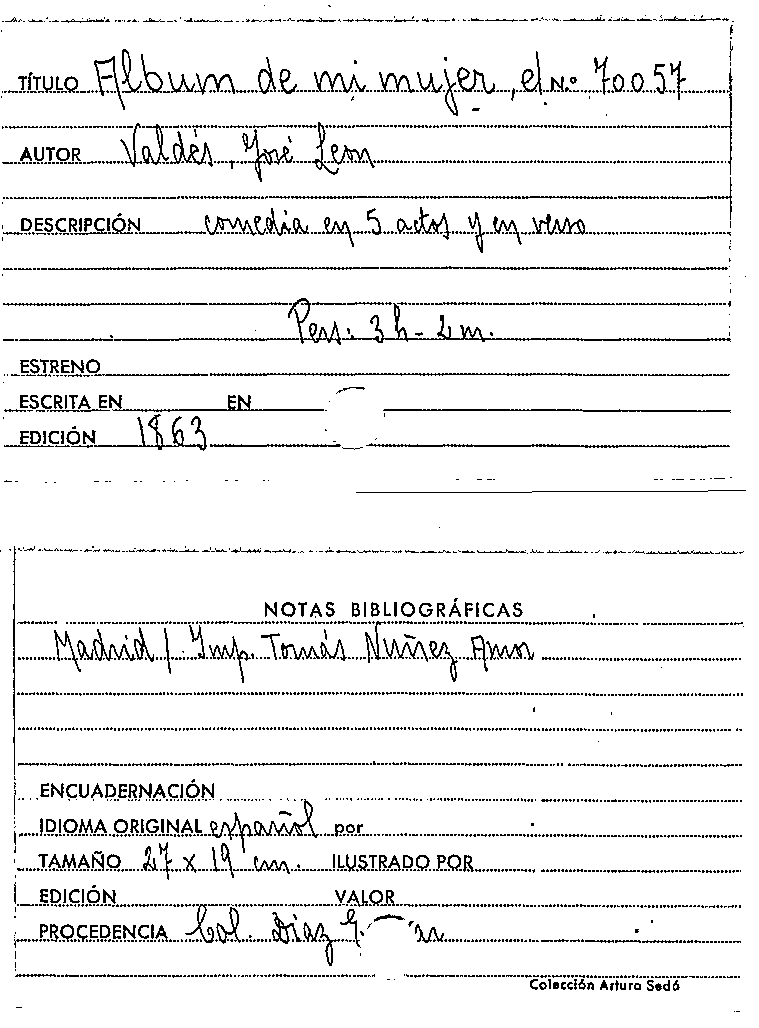 TÍTULO Album de mi mujer, el N.º 70057
AUTOR Valdés, José Leon
DESCRIPCIÓN comedia en 5 actos y en verso
Pers: 3 h - 2 m.
ESTRENO
ESCRITA EN EN
EDICIÓN 1863
NOTAS BIBLIOGRÁFICAS
Madrid / Imp. Tomás Nuñez Amor
ENCUADERNACIÓN
IDIOMA ORIGINAL español por
TAMAÑO 27 x 19 cm. ILUSTRADO POR
EDICIÓN VALOR
PROCEDENCIA Col. Díaz
Colección Arturo Sedó